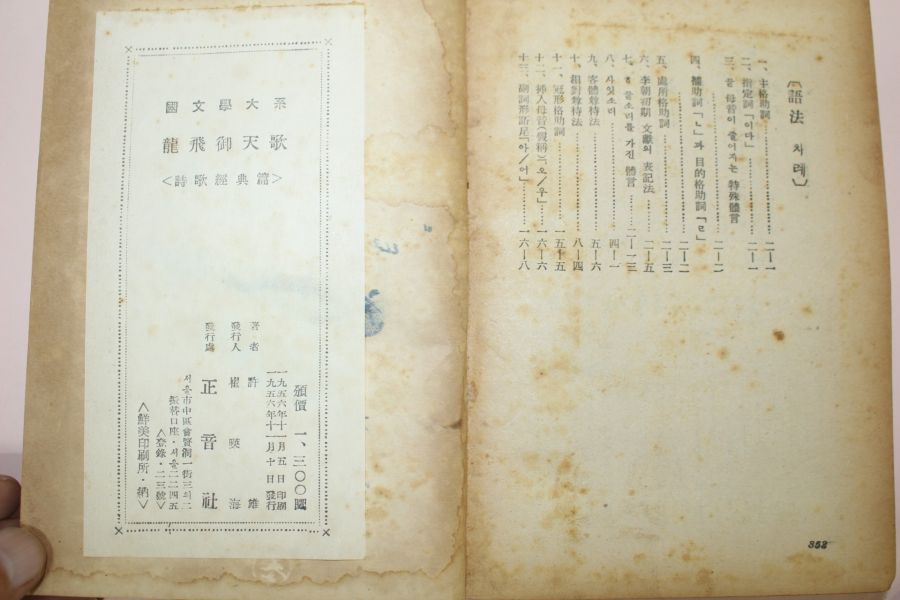 國文學大系
龍飛御天歌
<詩歌經典篇>
著者 許雄
發行人 崔暎海
發行處 正音社
頒價 一、三〇〇圜
一九五六年十一月五日 印刷
一九五六年十一月十日 發行
서울市中區會賢洞一街三의二
振替口座·서울二二四五
<登錄·二三號>
<鮮美印刷所·納>
〔語法 차례〕
一、主格助詞 二―一
二、指定詞「이다」 二―一
三、끝 母音이 줄어지는 特殊體言 二―二
四、補助詞「ㄴ」과 目的格助詞「ㄹ」 二―二
五、處所格助詞 二―三
六、李朝初期 文獻의 表記法 二―五
七、ㅎ 끝소리를 가진 體言 二―一三
八、사잇소리 四―一
九、客體尊待法 五―六
十、相對尊待法 八―四
十一、冠形格助詞 一五―五
十二、挿入母音(假稱)「오/우」 一六―六
十三、副詞形語尾「아/어」 一六―八
352